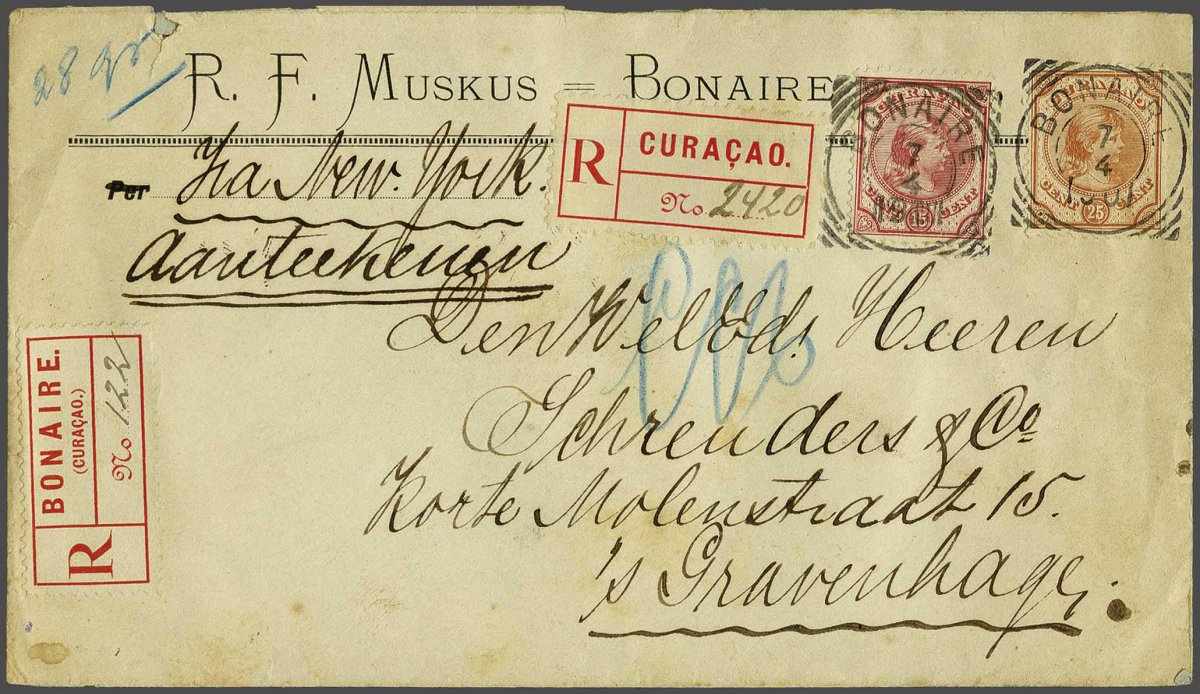 28 gr
R. F. MUSKUS = BONAIRE
Per Via New. York.
Aanteekenen
R CURAÇAO.
No. 2420
CURAÇAO
15 CENT
BONAIRE
7
4
CURAÇAO
CENT 25 CENT
BONAIRE
7
4
Den WelEds. Heeren
Schreuders & Co
Korte Molenstraat 15.
's Gravenhage.
R BONAIRE.
(CURAÇAO.)
No 122